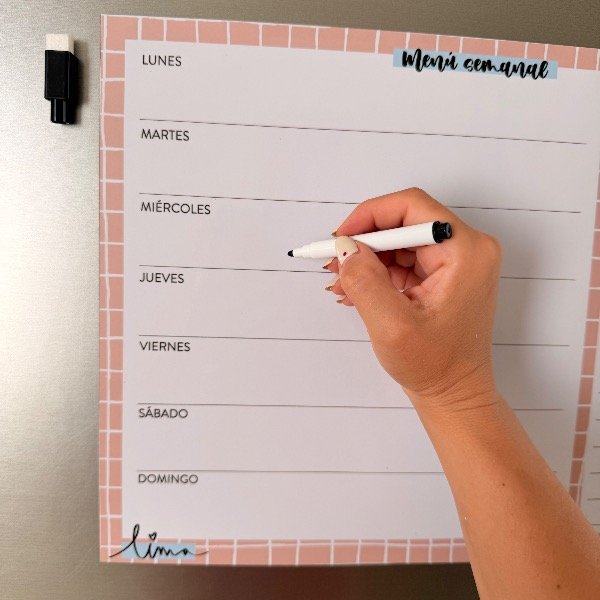 Menú semanal
LUNES
MARTES
MIÉRCOLES
JUEVES
VIERNES
SÁBADO
DOMINGO
lima